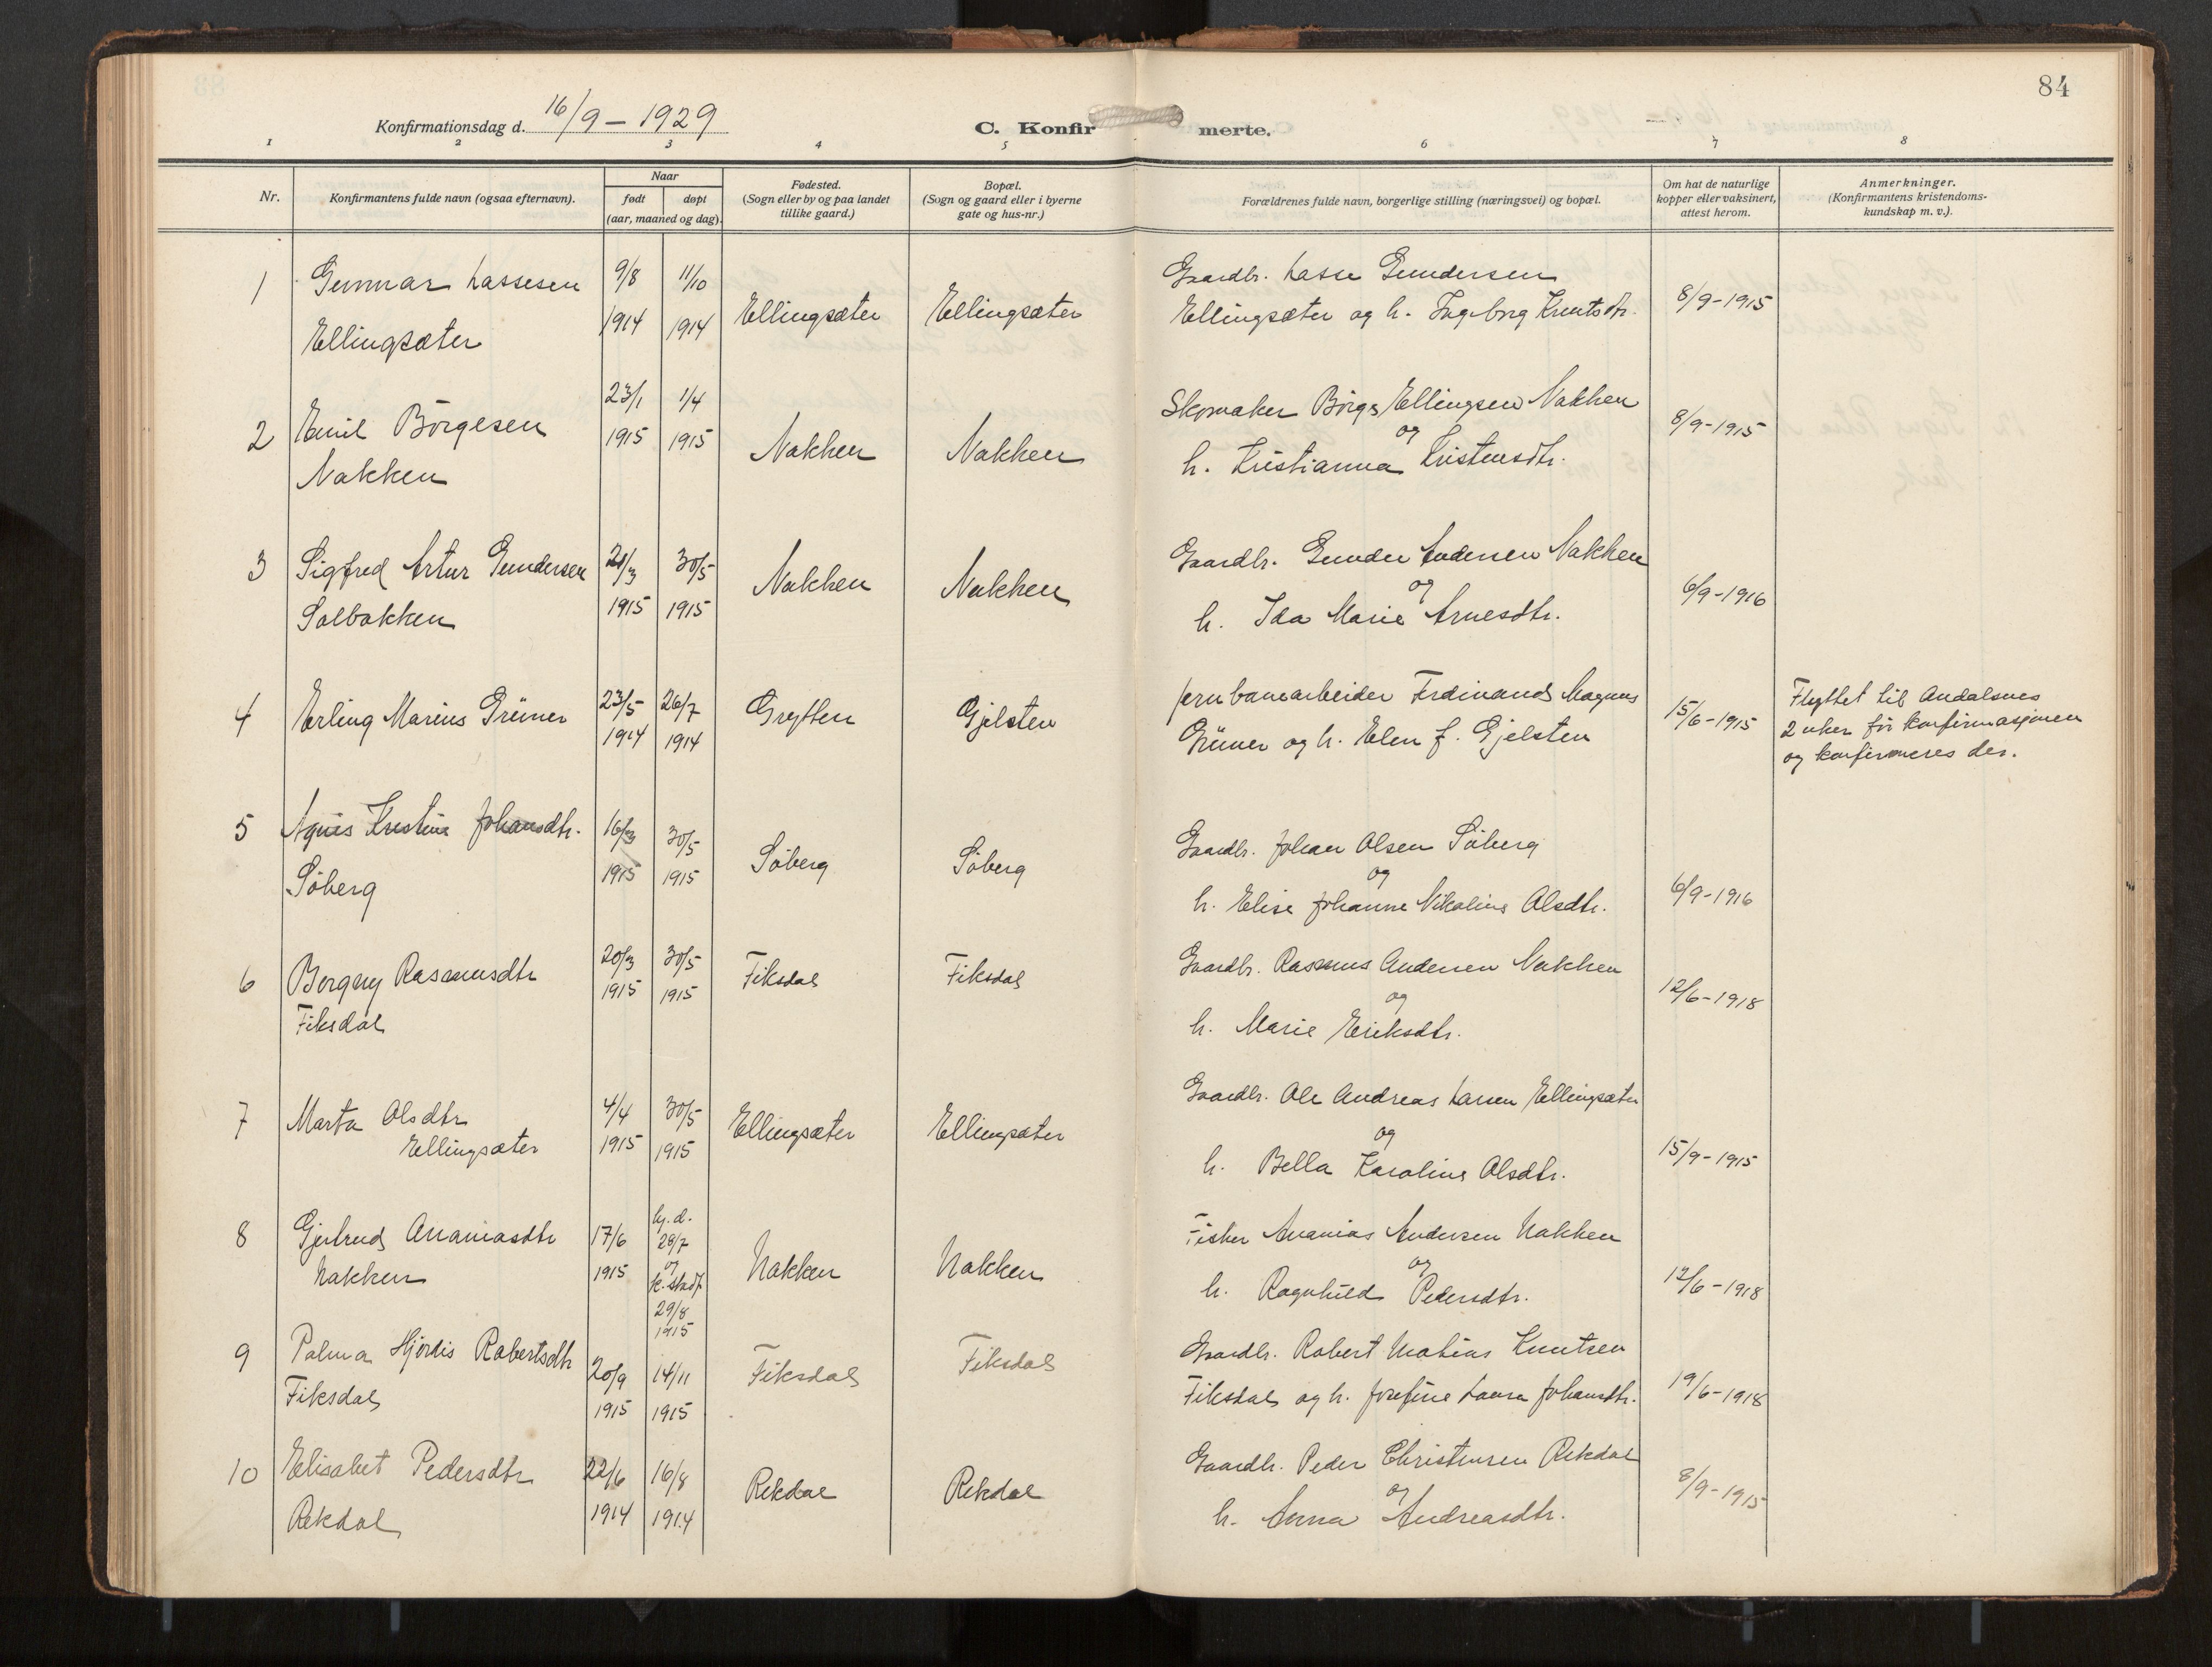 84
Konfirmationsdag d. 16/9 – 1929
C. Konfirmerte.
1 2 3 4 5 6 7 8
Nr.
Konfirmantens fulde navn (ogsaa efternavn).
Naar
født døpt
(aar, maaned og dag).
Fødested.
(Sogn eller by og paa landet
tillike gaard.)
Bopæl.
(Sogn og gaard eller i byerne
gate og hus-nr.)
Forældrenes fulde navn, borgerlige stilling (næringsvei) og bopæl.
Om hat de naturlige
kopper eller vaksinert,
attest herom.
Anmerkninger.
(Konfirmantens kristendoms-
kundskap m. v.).
1 Gunnar Lassesen 9/8 11/10 Gaardbr. Lasse Gundersen
Ellingsæter 1914 1914 Ellingsæter Ellingsæter Ellingsæter og h. Ingeborg Knutsdtr. 8/9-1915
2 Emil Börgesen 23/1 1/4 Skomaker Börge Ellingsen Nakken 8/9-1915
Nakken 1915 1915 Nakken Nakken og
h. Kristianna Kristensdtr.
3 Sigfred Artur Gundersen 21/3 30/5 Gaardbr. Gunder Andersen Nakken
Solbakken 1915 1915 Nakken Nakken og 6/9-1916
h. Ida Marie Arnesdtr.
4 Erling Marius Grüner 23/5 26/7 Grytten Gjelsten Jernbanearbeider Ferdinand Magnus 15/6-1915 Flyttet til Andalsnes
1914 1914 Grüner og h. Elen f. Gjelsten 2 uker för konfirmasjonen
og konfirmeres der.
5 Agnes Kristine Johansdtr. 16/3 30/5 Gaardbr. Johan Olsen Söberg
Söberg 1915 1915 Söberg Söberg og 6/9-1916
h. Elise Johanne Nikoline Olsdtr.
6 Borgny Rasmusdtr 20/3 30/5 Fiksdal Fiksdal Gaardbr. Rasmus Andersen Nakken
Fiksdal 1915 1915 og 12/6-1918
h. Marie Eriksdtr.
7 Marta Olsdtr 4/4 30/5 Gaardbr. Ole Andreas Larsen Ellingsæter
Ellingsæter 1915 1915 Ellingsæter Ellingsæter og 15/9-1915
h. Bella Karoline Olsdtr.
8 Gjertrud Ananiasdtr 17/6 hj.d. 28/7 Fisker Ananias Andersen Nakken
Nakken 1915 og k. stadf. 29/8 1915 Nakken Nakken og 12/6-1918
h. Ragnhild Pedersdtr.
9 Palma Hjördis Robertsdtr 20/9 14/11 Fiksdal Fiksdal Gaardbr. Robert Matias Knutsen
Fiksdal 1915 1915 Fiksdal og h. Josefine Laura Johansdtr. 19/6-1918
10 Elisabet Pedersdtr 22/6 16/8 Rekdal Rekdal Gaardbr. Peder Christensen Rekdal 8/9-1915
Rekdal 1914 1914 og
h. Anna Andreasdtr.